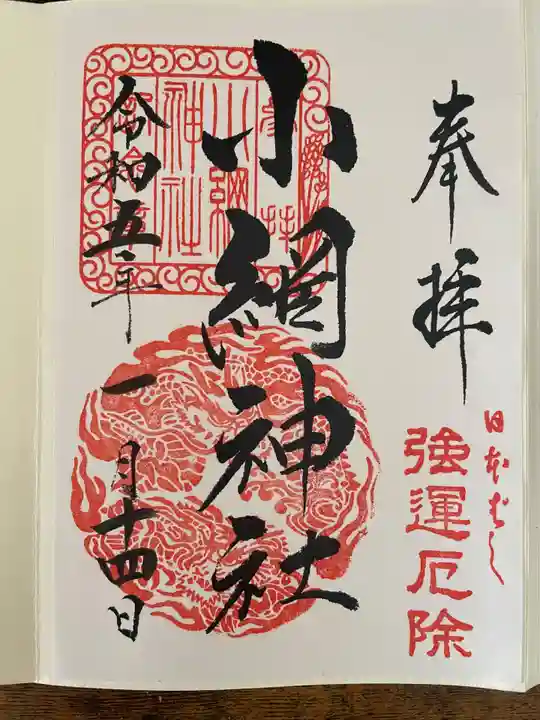 奉拝
日本ばし
強運厄除
小網神社
小網
神社
令和五年一月十四日